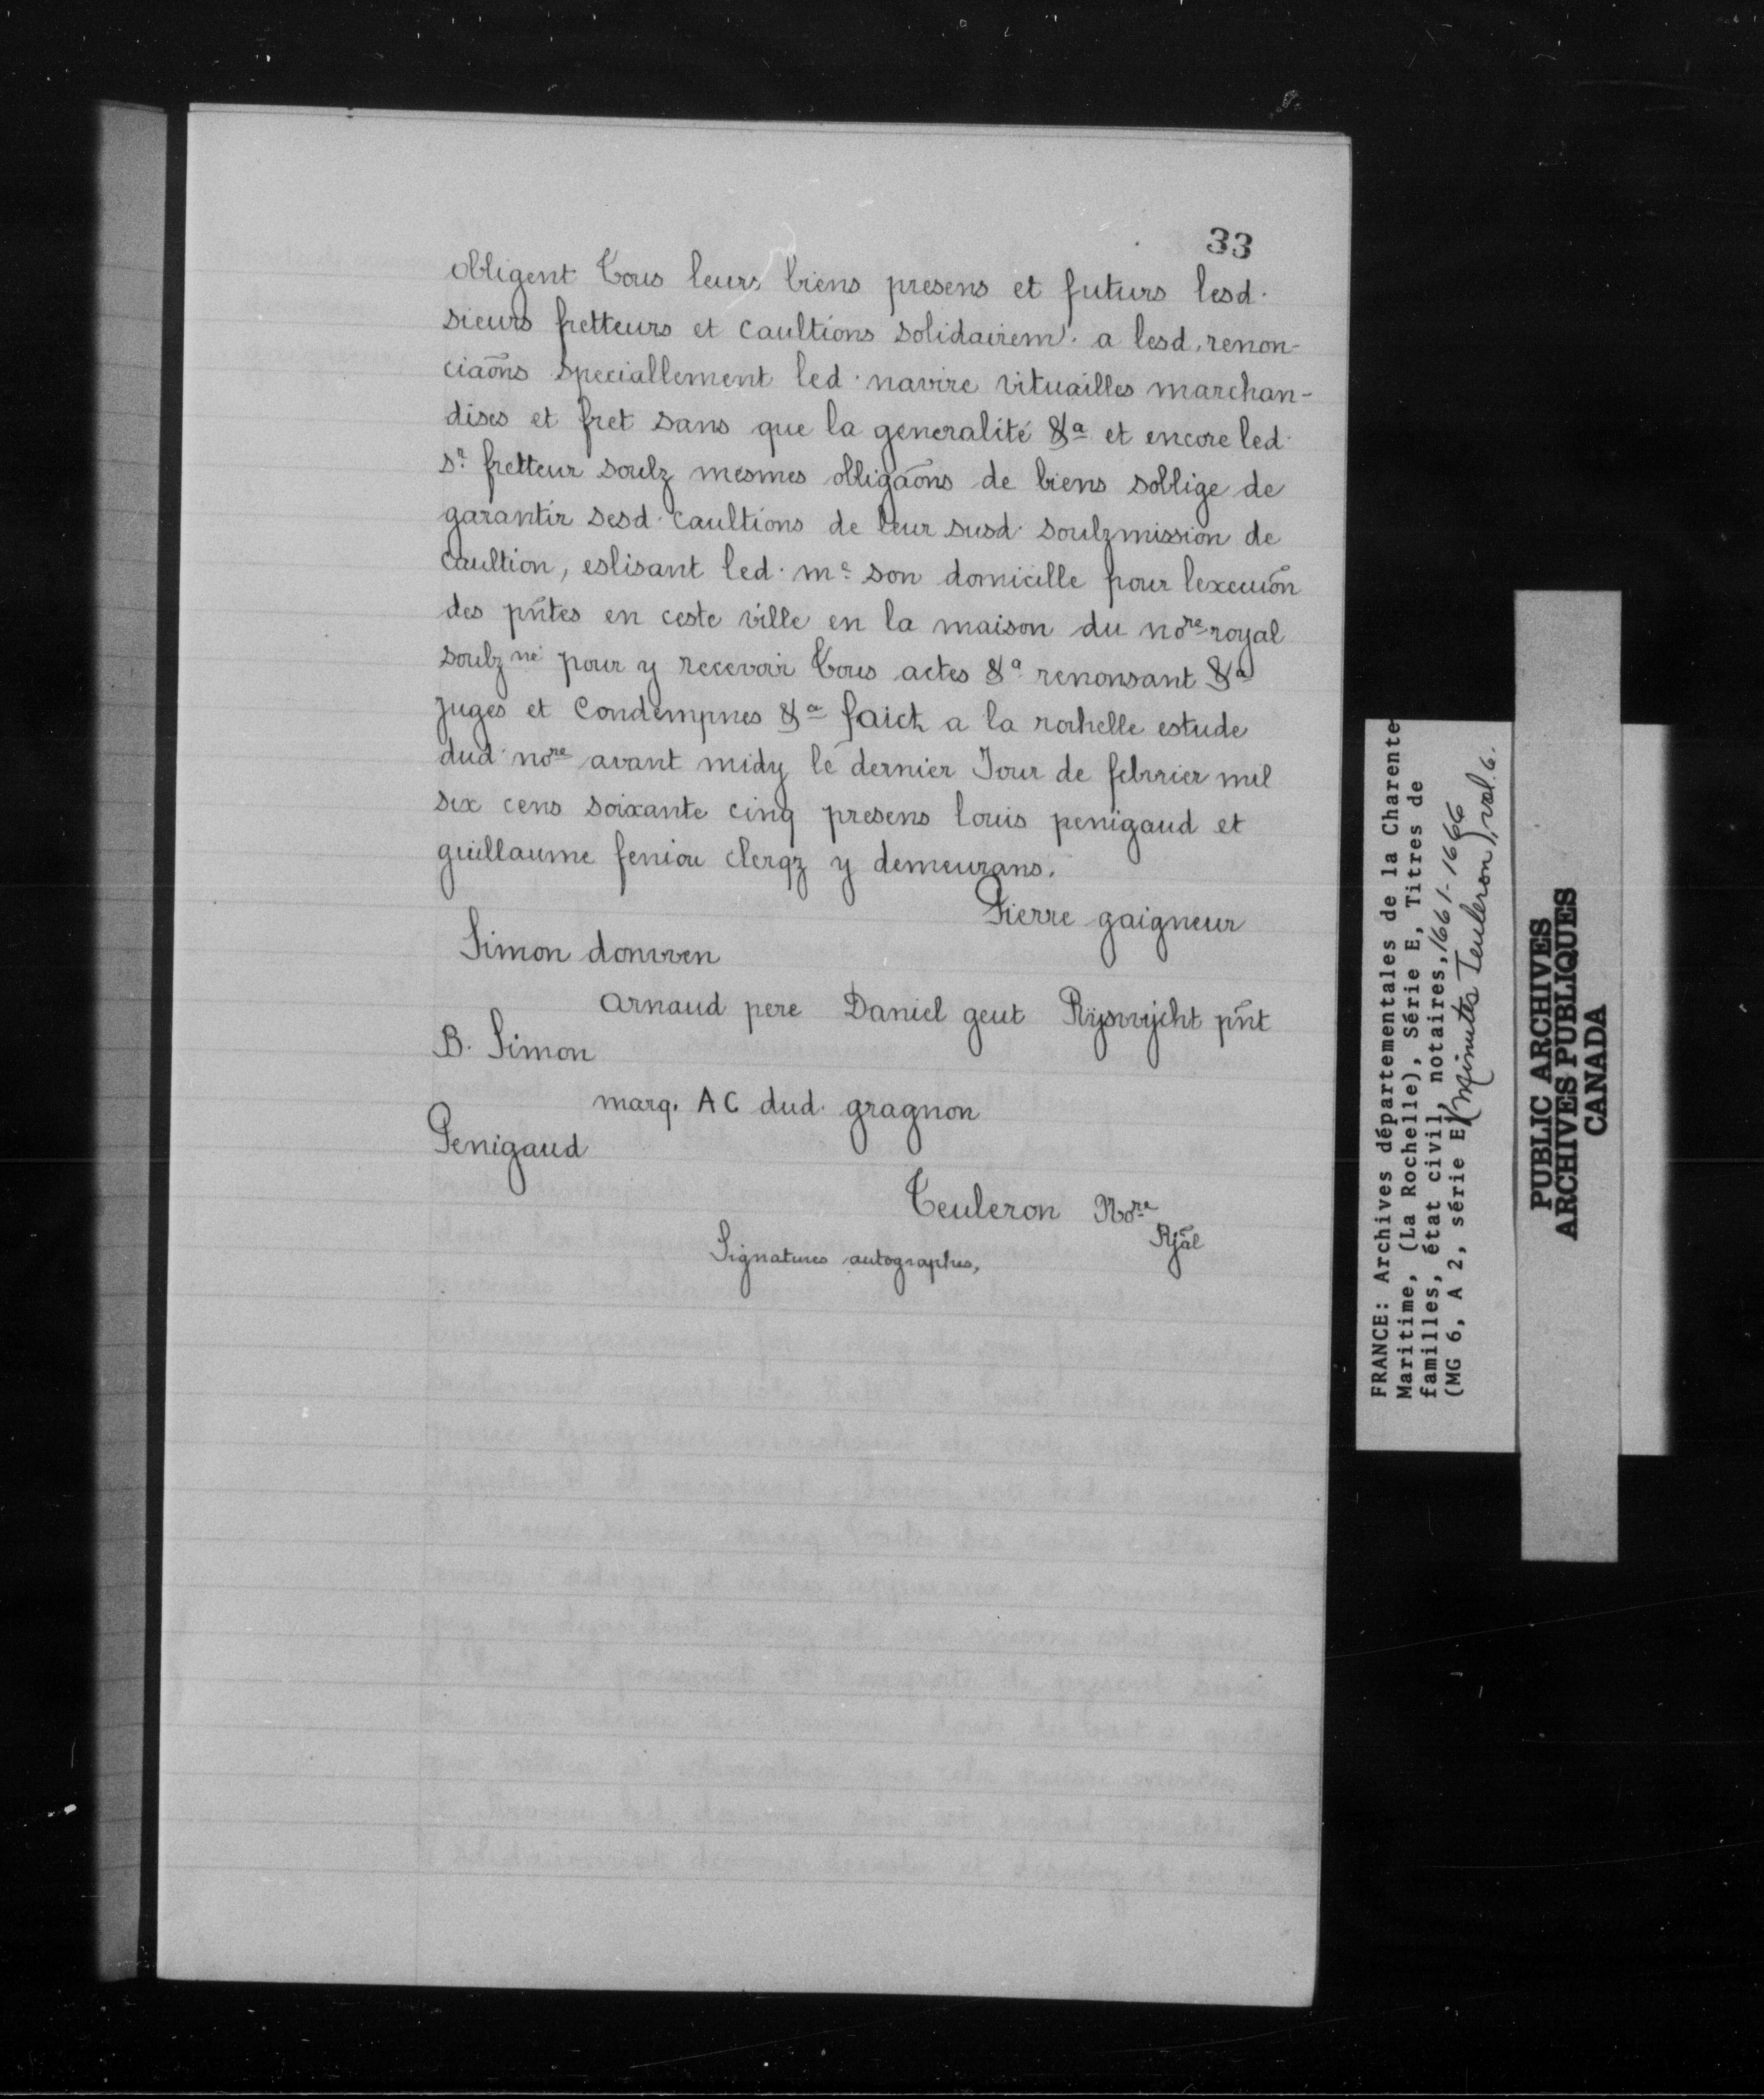 33
obligent tous leurs biens presens et futurs lesd.
sieurs fretteurs et caultions solidairemt. a lesd. renon-
ciaons̃ speciallement led. navire vituailles marchan-
dises et fret sans que la generalité &a et encore led.
sr. fretteur soulz mesmes obligaons̃ de biens soblige de
garantir sesd. caultions de leur susd. soulzmission de
caultion, eslisant led. me son domicille pour lexecuon̄
des pñtes en ceste ville en la maison du nore royal
soulzné pour y recevoir tous actes &a renonsant &a
juges et condempnes &a faict a la rochelle estude
dud. nore avant midy le dernier Jour de febvrier mil
six cens soixante cinq presens louis penigaud et
guillaume feniou clercqz y demeurans.
Pierre gaigneur
Simon donvven
arnaud pere Daniel geut Rijswijcht pñt
B. Simon
marq. AC dud. gragnon
Penigaud
Teuleron Nore
Rjāl
Signatures autographes.
FRANCE: Archives départementales de la Charente
Maritime, (La Rochelle), Série E, Titres de
familles, état civil, notaires, 1661-1666
(MG 6, A 2, série E) (Minutes Teuleron) vol. 6.
PUBLIC ARCHIVES
ARCHIVES PUBLIQUES
CANADA